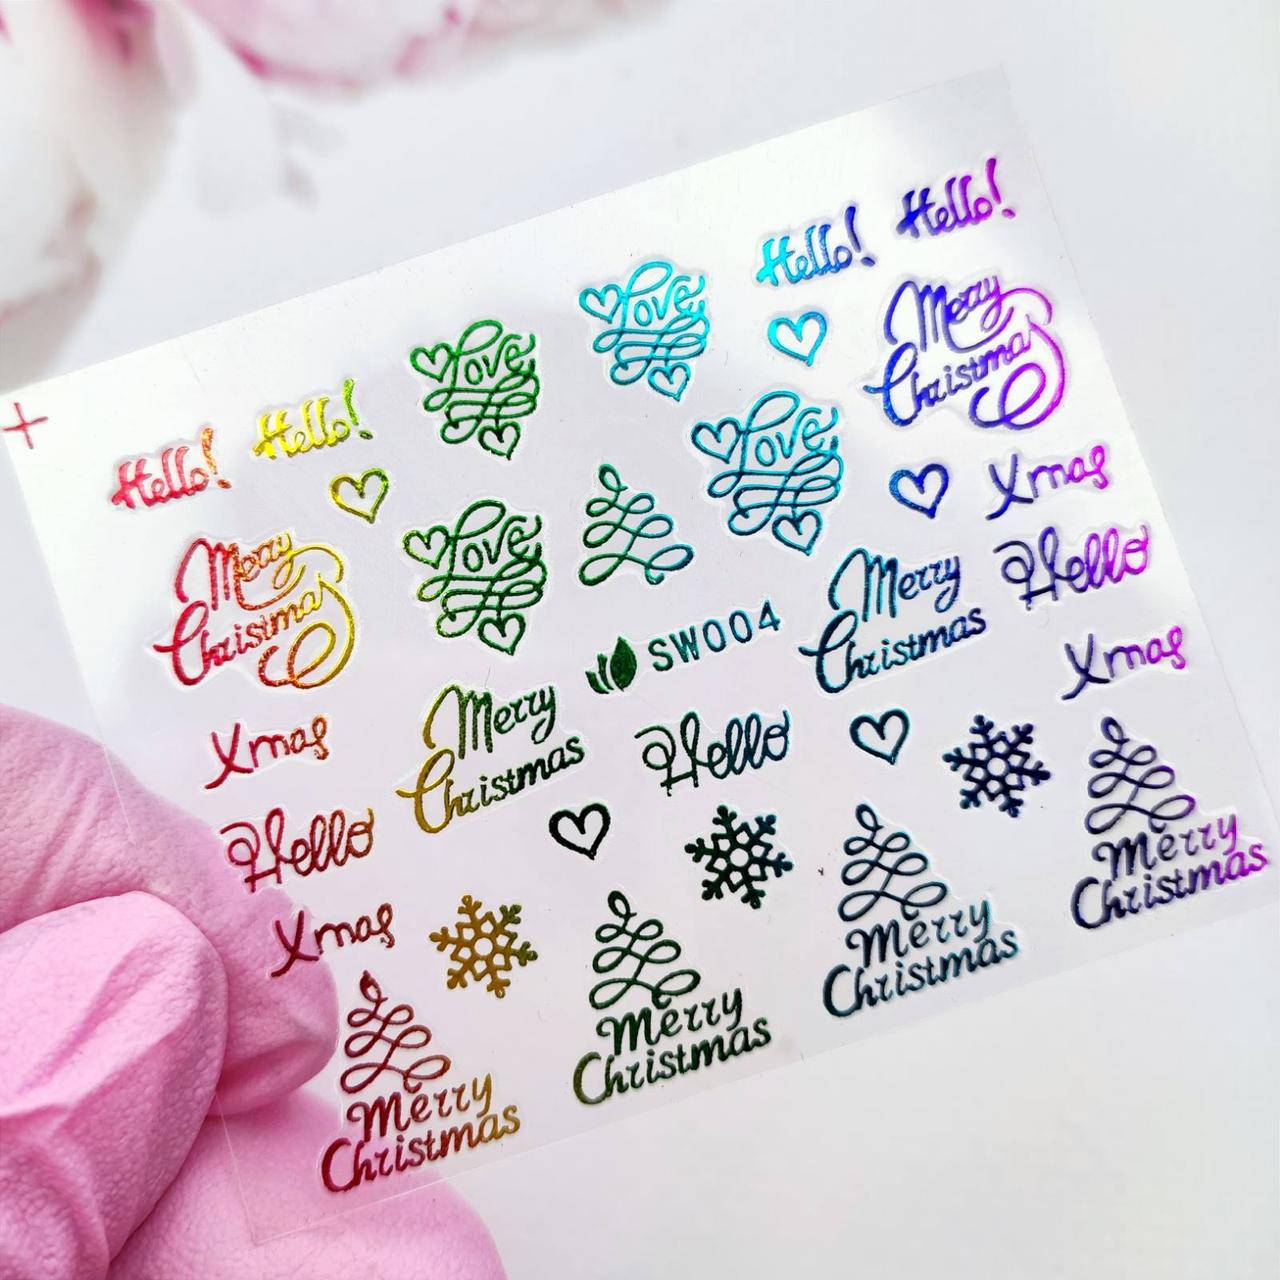 Hello!
Hello!
Love
Love
Hello!
Hello!
Merry
Christmas
Love
Love
Merry
Christmas
Xmas
Xmas
Merry
Christmas
SW004
Merry
Christmas
Hello
Hello
Hello
Xmas
Xmas
Merry
Christmas
Merry
Christmas
Merry
Christmas
Merry
Christmas